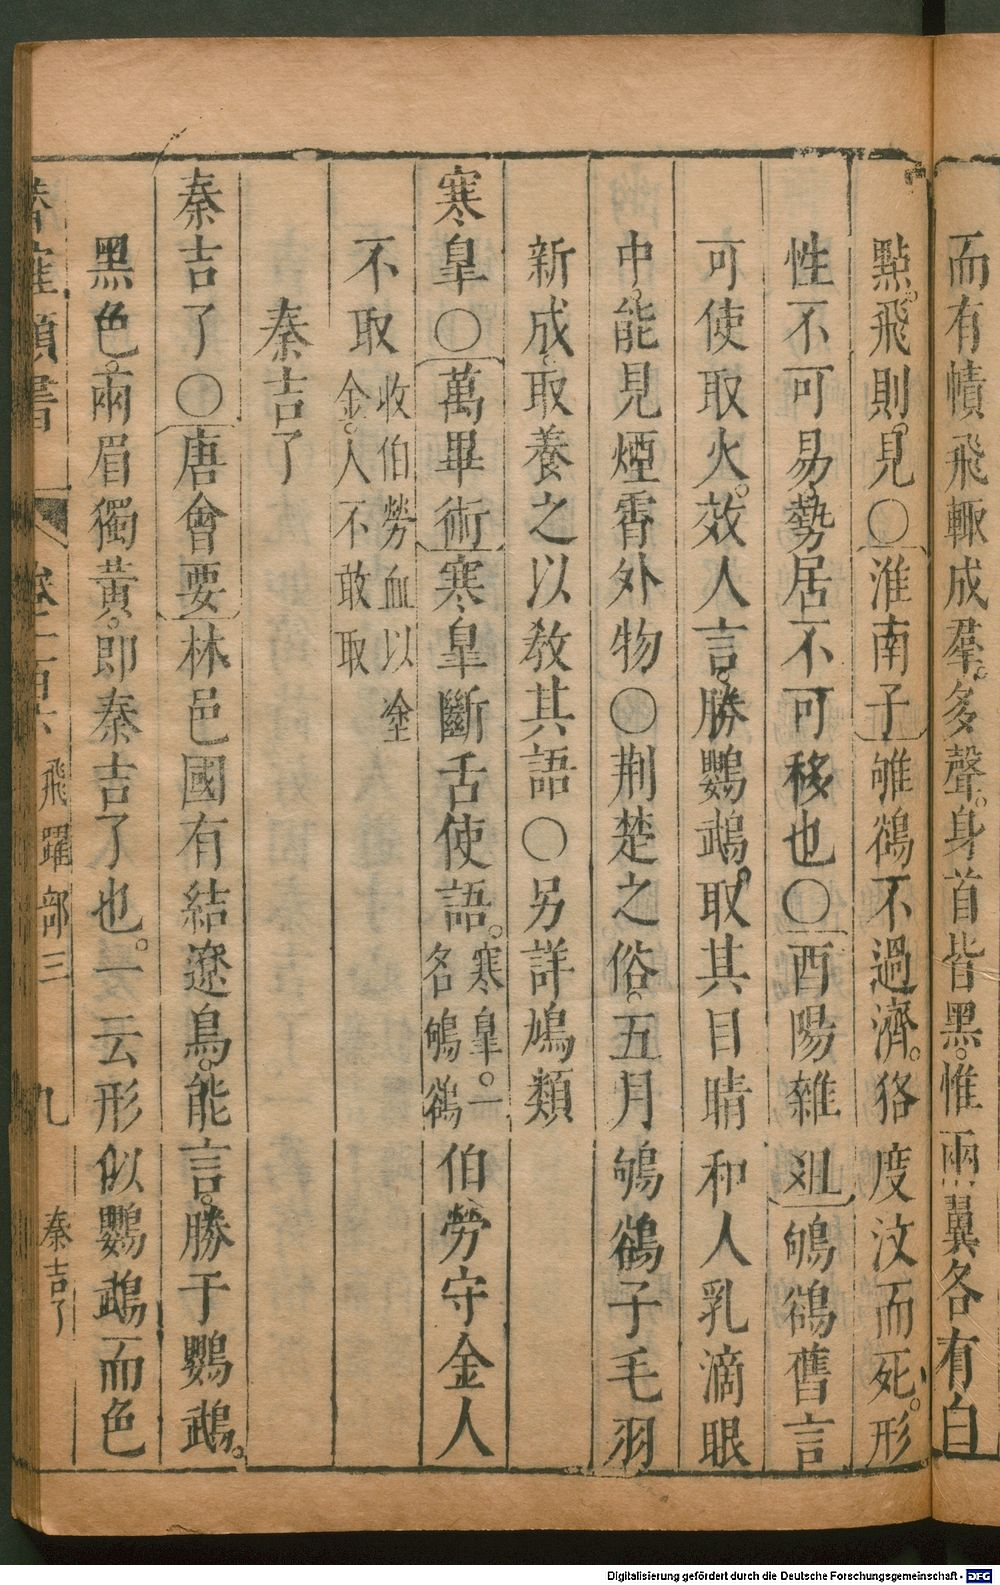 而有幘飛輙成羣。多聲。身首皆黑。惟兩翼各有白
點。飛則見○淮南子鴝鵒不過濟。狢度汶而死。形
性不可易勢居不可移也○酉陽雜俎鴝鵒舊言
可使取火。效人言。勝鸚鵡。取其目睛和人乳滴眼
中。能見煙霄外物○荆楚之俗。五月鴝鵒子毛羽
新成。取養之以教其語○另詳鳩類
寒皐○萬畢術寒皐斷舌使語。寒皐。一名鴝鵒伯勞守金人
不取收伯勞血以塗金。人不敢取
秦吉了
秦吉了○唐會要林邑國有結遼鳥。能言。勝于鸚鵡。
黑色。兩眉獨黃。即秦吉了也。一云形似鸚鵡而色
類書 飛躍部三 九 秦吉了
Digitalisierung gefördert durch die Deutsche Forschungsgemeinschaft - DFG